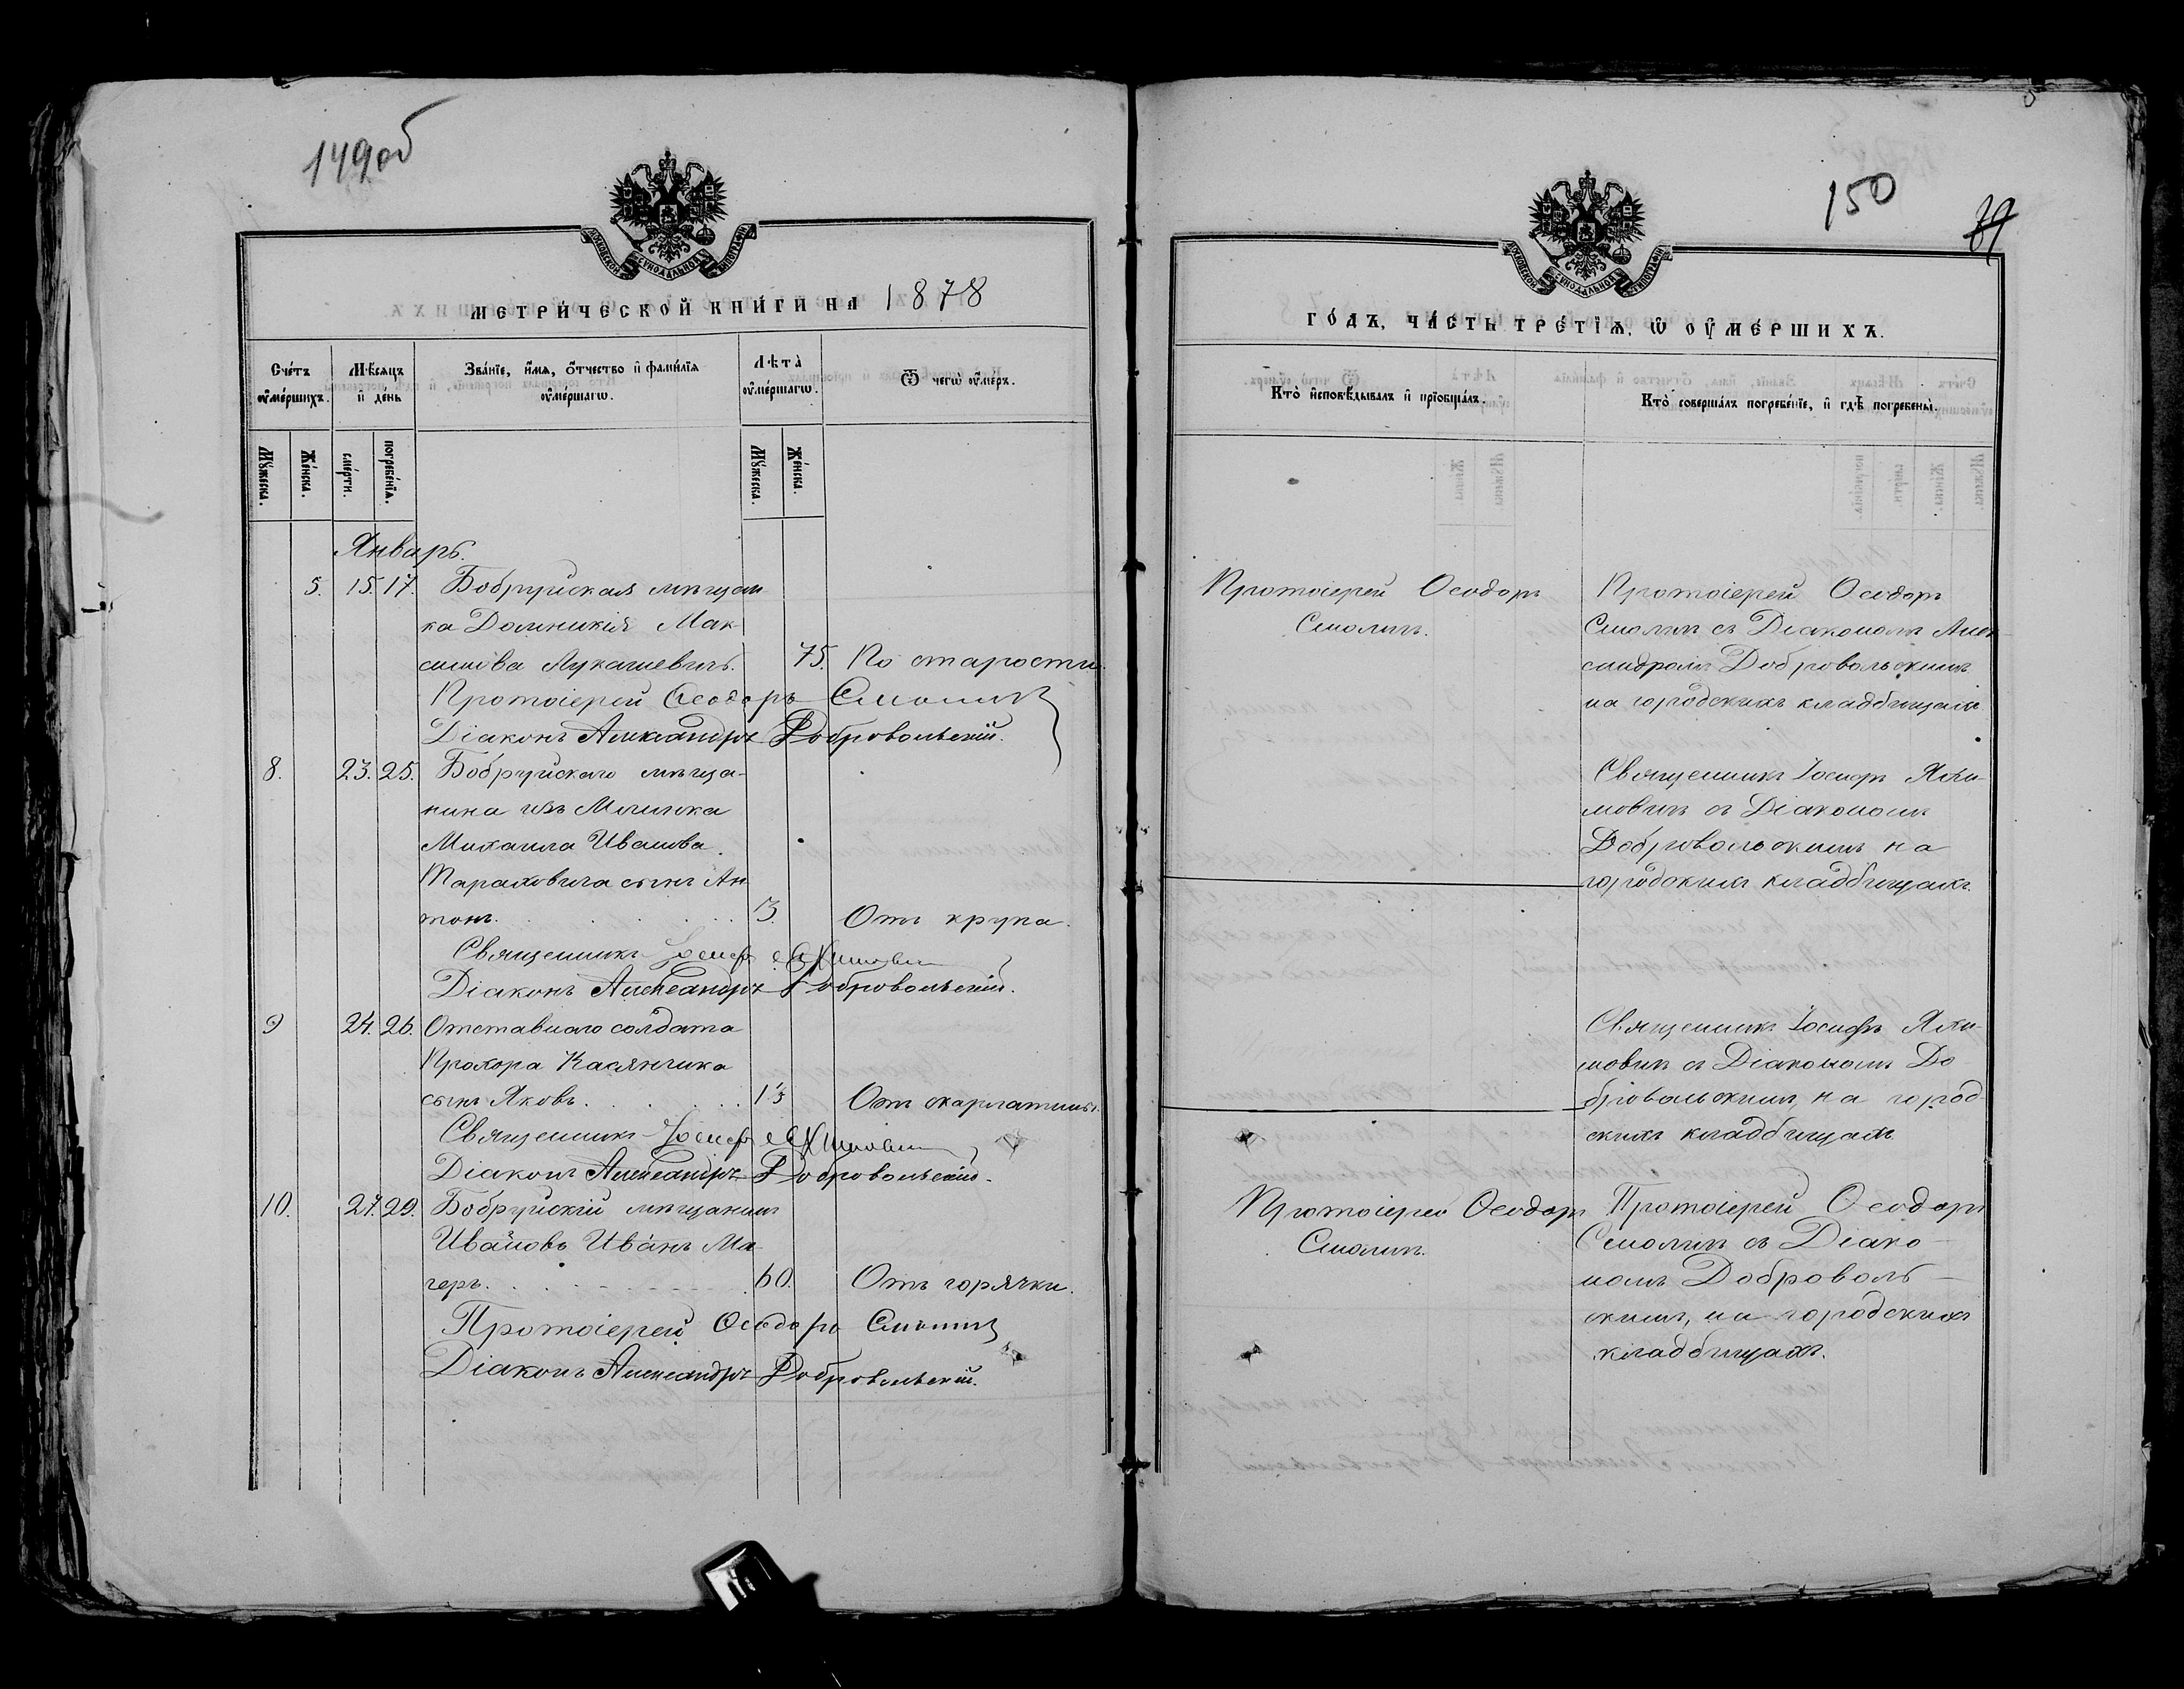 149об
МОСКОВСКОЙ СУНОДАЛЬНОЙ ТИПОГРАФІИ
МЕТРИ́ЧЕСКОЙ КНИ́ГИ НА 1878
Сче́тъ ᲂу҆ме́ршихъ.
Мѣ́сяцъ и҆ де́нь
Зва́нїе, и҆́мѧ, ѻ҆́тчество и҆ фами́лїѧ ᲂу҆ме́ршагѡ.
Лѣ́та ᲂу҆ме́ршагѡ.
Ѿ чегѡ̀ ᲂу҆́меръ.
Мꙋ́жеска.
Же́нска.
сме́рти.
погребе́нїѧ.
Мꙋ́жеска.
Же́нска.
Январь.
5. 15. 17. Бобруйская мѣщан
ка Домникія Мак-
симова Лукашевичъ. 75. По старости.
Протоіерей Ѳеодоръ Смолич
Діаконъ Александръ Добровольскій.
8. 23. 25. Бобруйскаго мѣща-
нина изъ
Михаила Иванова
Тараховича сынъ Ан
тонъ. 3. Отъ крупа.
Священникъ Іосифъ Яхимович
Діаконъ Александръ Добровольскій.
9 24. 26. Отставнаго солдата
Прохора Касянчика
сынъ Яковъ. 1½ Отъ скарлатины.
Священникъ Іосифъ Яхимович
Діаконъ Александръ Добровольскій.
10. 27. 29. Бобруйскій мѣщанинъ
Ивановъ Иванъ Ма-
геръ. 60. Отъ горячки.
Протоіерей Ѳеодоръ Смолич
Діаконъ Александръ Добровольскій.
150
МОСКОВСКОЙ СУНОДАЛЬНОЙ ТИПОГРАФІИ
ГО́ДЪ, ЧА́СТЬ ТРЕ́ТЇѦ, Ѡ҆ ОУ҆МЕ́РШИХЪ.
Кто̀ и҆сповѣ́дывалъ и҆ прїобща́лъ.
Кто̀ соверша́лъ погребе́нїе, и҆ гдѣ̀ погребены̀.
Протоіерей Ѳеодоръ
Смоличъ.
Протоіерей Ѳеодоръ
Смоличъ съ Діакономъ Алек-
сандромъ Добровольскимъ
на городскихъ кладбищахъ
Священникъ Іосифъ Яхи-
мовичъ съ Діакономъ
Добровольскимъ на
городскихъ кладбищахъ.
Священникъ Іосифъ Яхи-
мовичъ съ Діакономъ До
бровольскимъ, на город
скихъ кладбищахъ
Протоіерей Ѳеодоръ
Смоличъ.
Протоіерей Ѳеодоръ
Смоличъ съ Діако-
номъ Доброволь-
скимъ, на городскихъ
кладбищахъ.